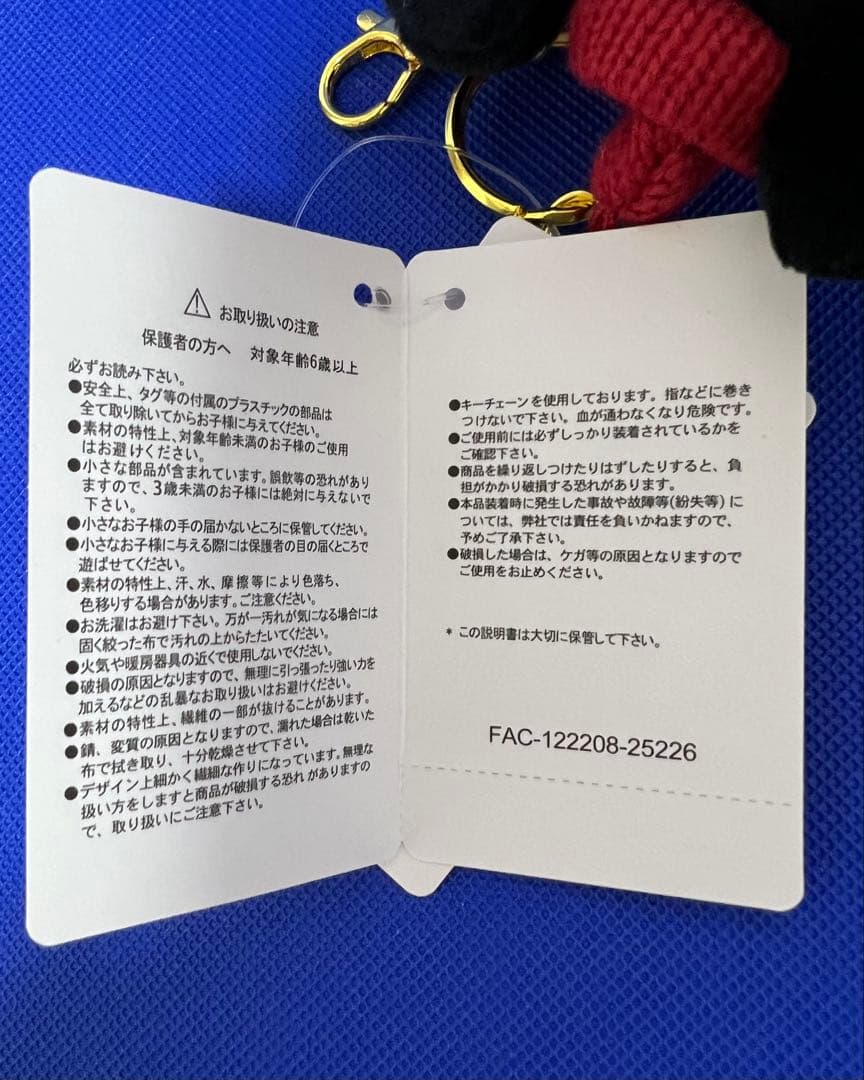 ⚠ お取り扱いの注意
保護者の方へ 対象年齢6歳以上
必ずお読み下さい。
●安全上、タグ等の付属のプラスチックの部品は
全て取り除いてからお子様に与えてください。
●素材の特性上、対象年齢未満のお子様のご使用
はお避けください。
●小さな部品が含まれています。誤飲等の恐れがあり
ますので、3歳未満のお子様には絶対に与えないで
下さい。
●小さなお子様の手の届かないところに保管してください。
●小さなお子様に与える際には保護者の目の届くところで
遊ばせてください。
●素材の特性上、汗、水、摩擦等により色落ち、
色移りする場合があります。ご注意ください。
●お洗濯はお避け下さい。万が一汚れが気になる場合には
固く絞った布で汚れの上からたたいてください。
●火気や暖房器具の近くで使用しないでください。
●破損の原因となりますので、無理に引っ張ったり強い力を
加えるなどの乱暴なお取り扱いはお避けください。
●素材の特性上、繊維の一部が抜けることがあります。
●錆、変質の原因となりますので、濡れた場合は乾いた
布で拭き取り、十分乾燥させて下さい。
●デザイン上細かく繊細な作りになっています。無理な
扱い方をしますと商品が破損する恐れがありますの
で、取り扱いにご注意下さい。
●キーチェーンを使用しております。指などに巻き
つけないで下さい。血が通わなくなり危険です。
●ご使用前には必ずしっかり装着されているかを
ご確認下さい。
●商品を繰り返しつけたりはずしたりすると、負
担がかかり破損する恐れがあります。
●本品装着時に発生した事故や故障等(紛失等)に
ついては、弊社では責任を負いかねますので、
予めご了承下さい。
●破損した場合は、ケガ等の原因となりますので
ご使用をお止めください。
* この説明書は大切に保管して下さい。
FAC-122208-25226